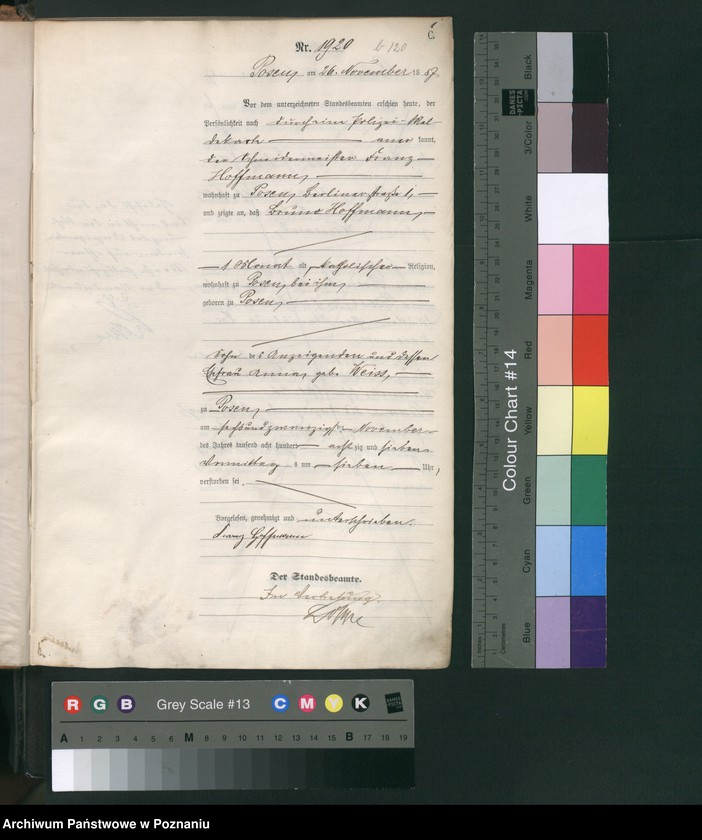 C.
Nr. 1920
Posen, am 26. November 1887.
Vor dem unterzeichneten Standesbeamten erschien heute, der
Persönlichkeit nach durch eine Polizei-Mel-
dekarte anerkannt,
der Schneidermeister Franz
Hoffmann,
wohnhaft zu Posen, Berlinerstraße 1,
und zeigte an, daß Bruno Hoffmann,
1 Monat alt, katholischer Religion,
wohnhaft zu Posen, bei ihm,
geboren zu Posen,
Sohn des Anzeigenden und dessen
Ehefrau Anna, geb. Weiss,
zu Posen,
am sechsundzwanzigsten November
des Jahres tausend acht hundert achtzig und sieben
Vormittags um sieben Uhr,
verstorben sei.
Vorgelesen, genehmigt und unterschrieben.
Franz Hoffmann
Der Standesbeamte.
In Vertretung.
Black
3/Color
White
Magenta
Red
Yellow
Green
Cyan
Blue
Colour Chart #14
DANES
PICTA
Inches
Centimetres
R G B Grey Scale #13 C M Y K
A 1 2 3 4 5 6 M 8 9 10 11 12 13 14 15 B 17 18 19
Archiwum Państwowe w Poznaniu